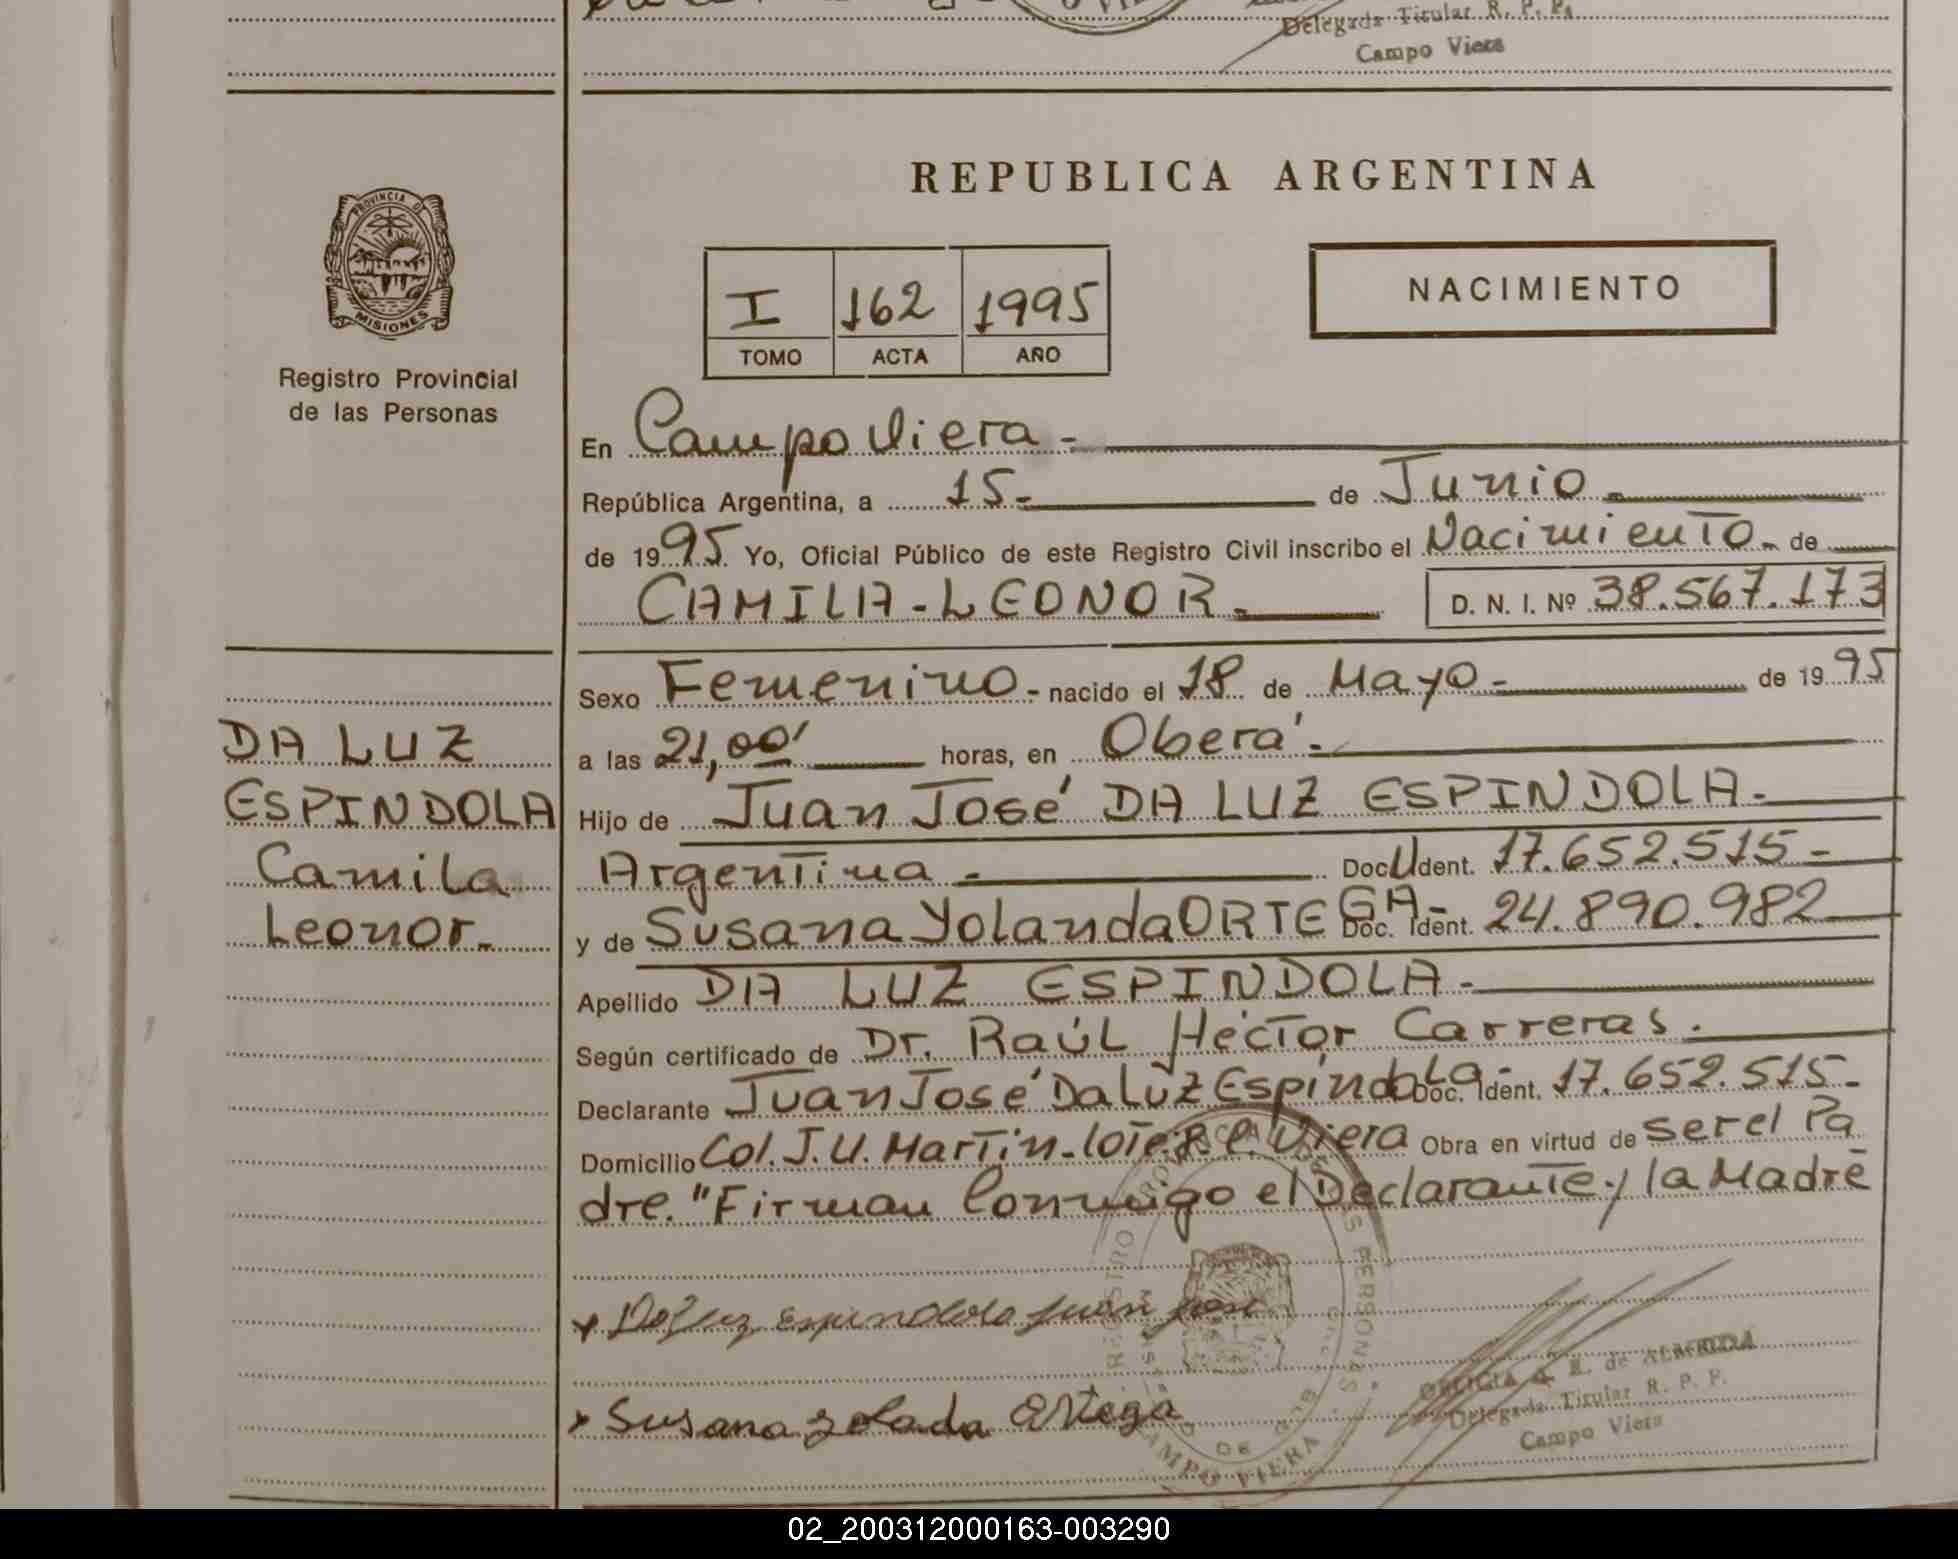 Delegada Titular R. P. P.
Campo Viera
PROVINCIA DE
MISIONES
Registro Provincial
de las Personas
REPUBLICA ARGENTINA
I 162 1995
TOMO ACTA AÑO
NACIMIENTO
En Campo Viera.-
República Argentina, a 15.- de Junio.-
de 1995. Yo, Oficial Público de este Registro Civil inscribo el Nacimiento.- de
CAMILA-LEONOR.- D. N. I. Nº 38.567.173
DA LUZ
ESPINDOLA
Camila
Leonor.-
Sexo Femenino.- nacido el 18 de Mayo.- de 1995
a las 21,00' horas, en Oberá.-
Hijo de Juan José DA LUZ ESPINDOLA.-
Argentina.- Doc U Ident. 17.652.515-
y de Susana Yolanda ORTEGA- Doc. Ident. 24.890.982
Apellido DA LUZ ESPINDOLA.-
Según certificado de Dr. Raúl Héctor Carreras.
Declarante Juan José Da Luz Espíndola- Doc. Ident. 17.652.515-
Domicilio Col. J.U. Martín-lote 8 C. Viera Obra en virtud de ser el Pa
dre. "Firman Conmigo el Declarante y la Madre
Da Luz espindola juan jose
Susana yolada Ortega
REGISTRO PROVINCIAL DE LAS PERSONAS
CAMPO VIERA
de ALMEIDA
Delegada Titular R. P. P.
Campo Viera
02_200312000163-003290